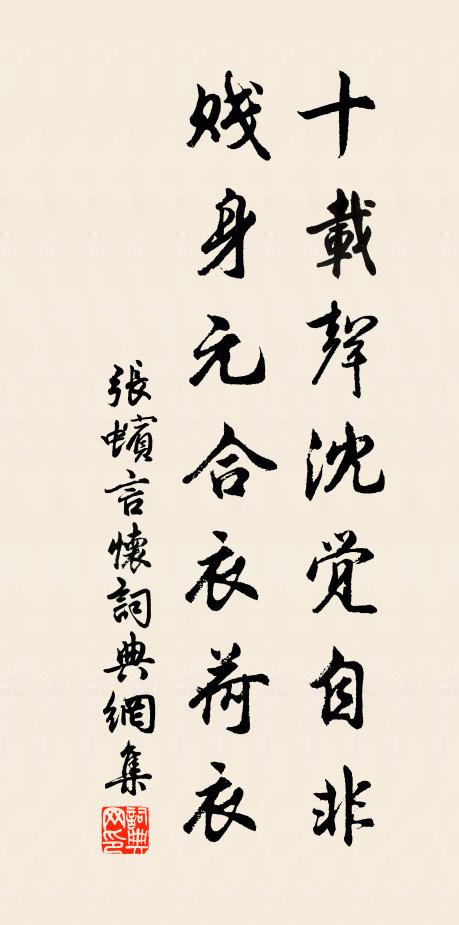 十載聲沈覺自非
賤身元合衣荷衣
張蠙言懷詞典網集
詞典網印